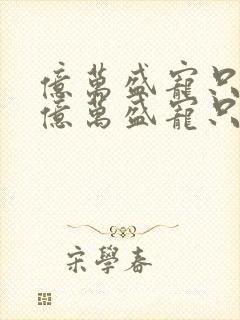 億萬盛寵只
億萬盛寵只
宋學春